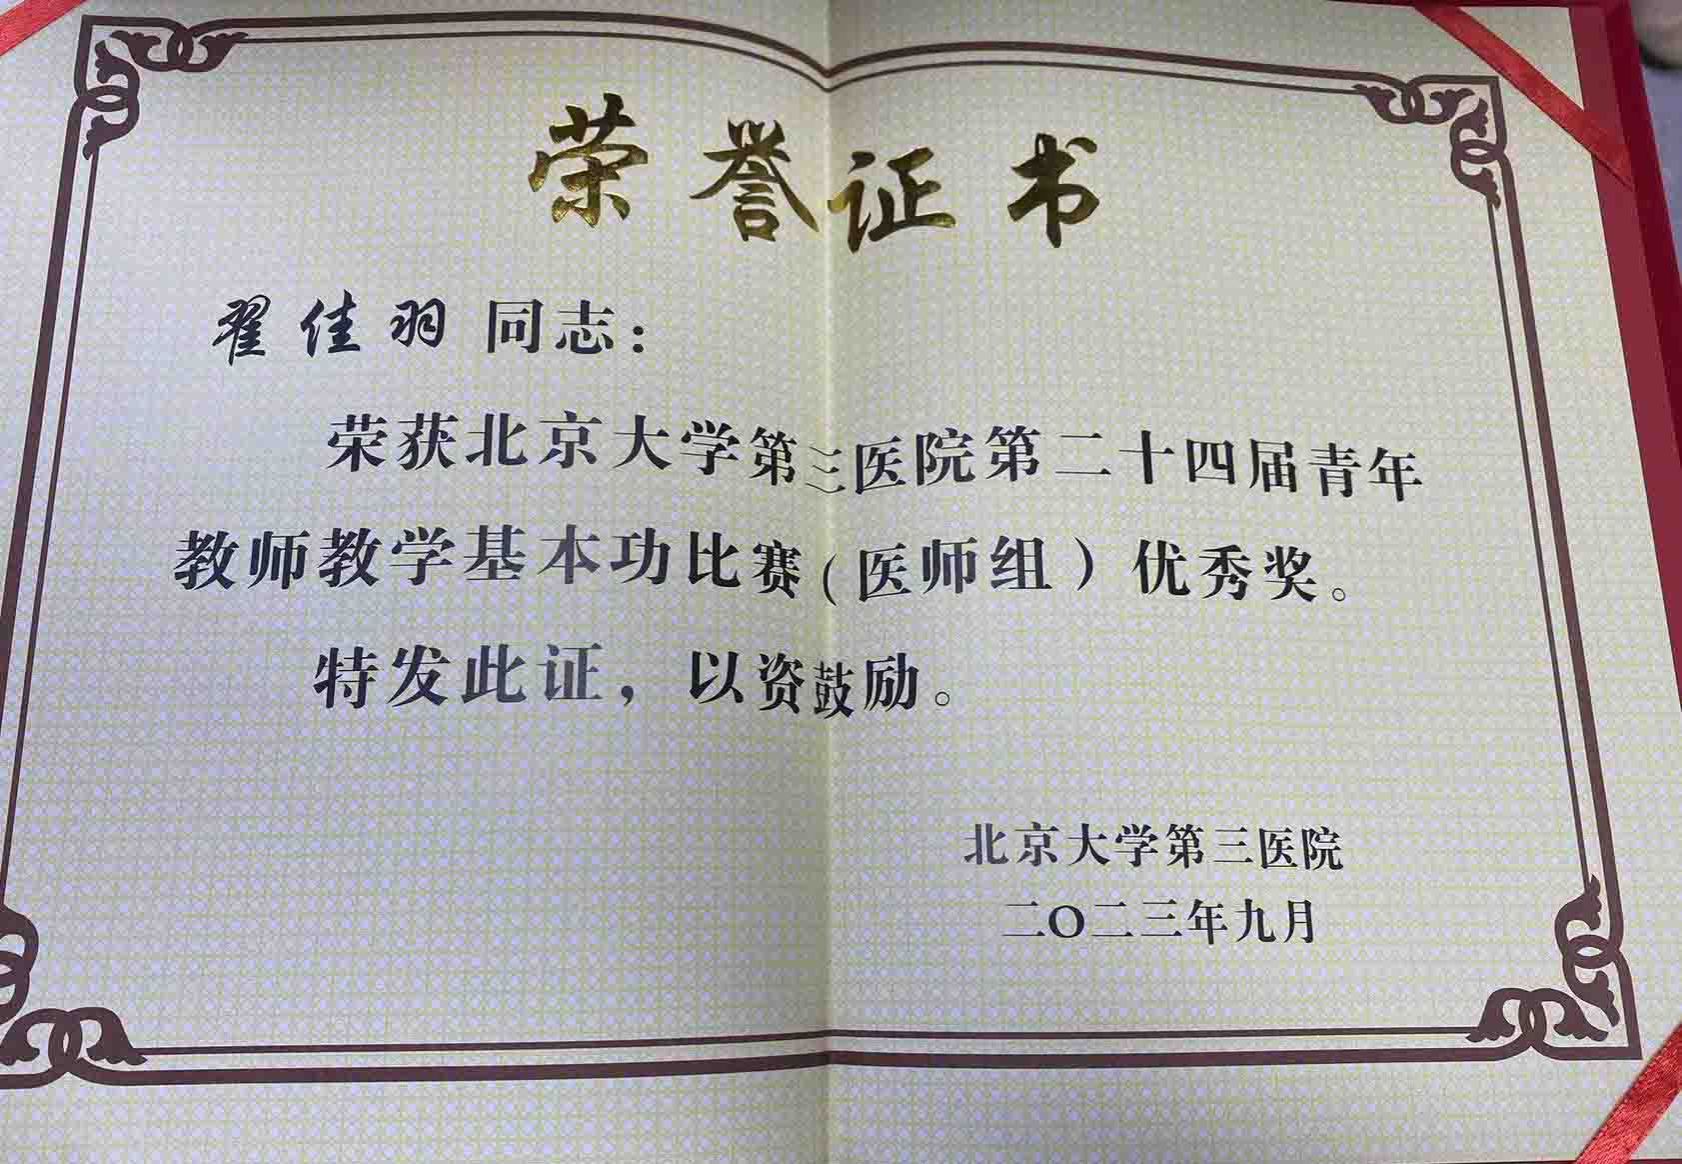 荣誉证书
翟佳羽 同志：
荣获北京大学第三医院第二十四届青年
教师教学基本功比赛（医师组）优秀奖。
特发此证，以资鼓励。
北京大学第三医院
二〇二三年九月